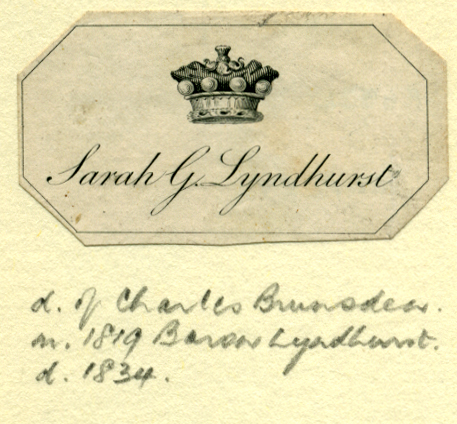 Sarah G. Lyndhurst
d. of Charles Brunsden.
m. 1819 Baron Lyndhurst.
d. 1834.